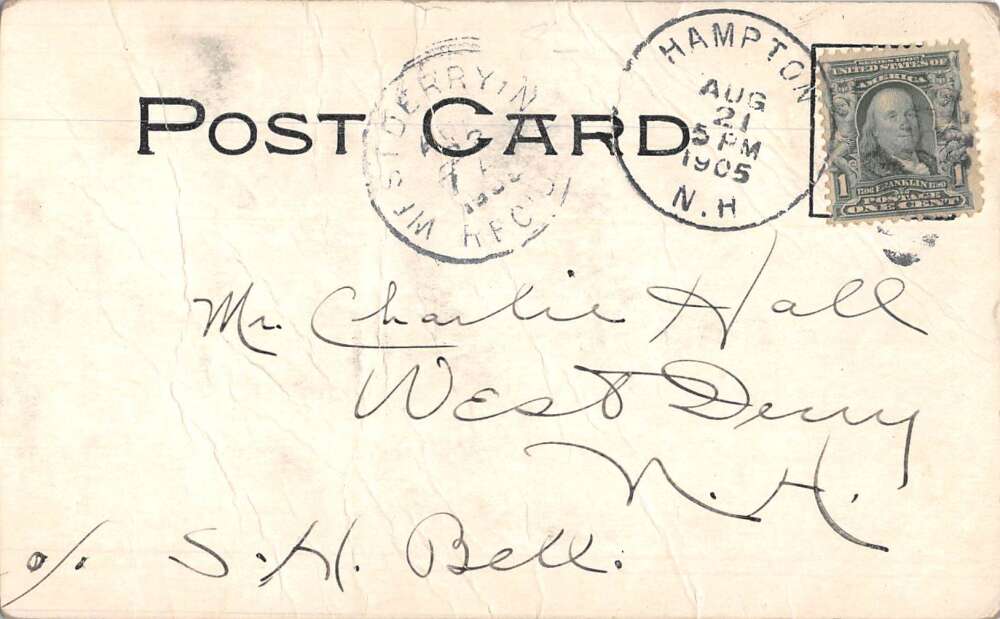 POST CARD
WEST DERRY N.H.
REC'D
HAMPTON
AUG
21
5 PM
1905
N.H
SERIES 1902
UNITED STATES OF
AMERICA
1 FRANKLIN 1
POSTAGE
ONE CENT
Mr. Charlie Hall
West Derry
N.H.
c/o S.H. Bell.